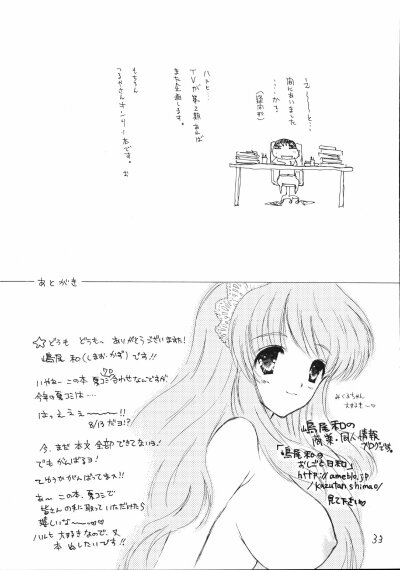 え〜〜〜っと…
間にあいました
…かな
ハルヒ…
TVが第2期あれば
また企画します。
もちろん
つるやさんオンリー本です。
あとがき
☆どうも どうもー ありがとうございました!
嶋尾 和(しまお・かず)です!!
いやねー この本 夏コミ合わせなんですが
今年の夏コミは…
はっえぇぇ〜〜〜!!
8/13だヨ!?
今、まだ本文全部できてないヨ!
でもがんばるヨ!
てゆうかがんばってまス!!
あ〜 この本、夏コミで
皆さんの手に取っていただけたら
嬉しいな〜
ハルヒ 大好きなので、又
本 出したいです!!
みくるちゃん
大好き〜♡
嶋尾和の
商業・同人情報
ブログです。
「嶋尾和の
おしごと日和」
http://ameblo.jp/
kazutan.shimao/
見て下さい
33